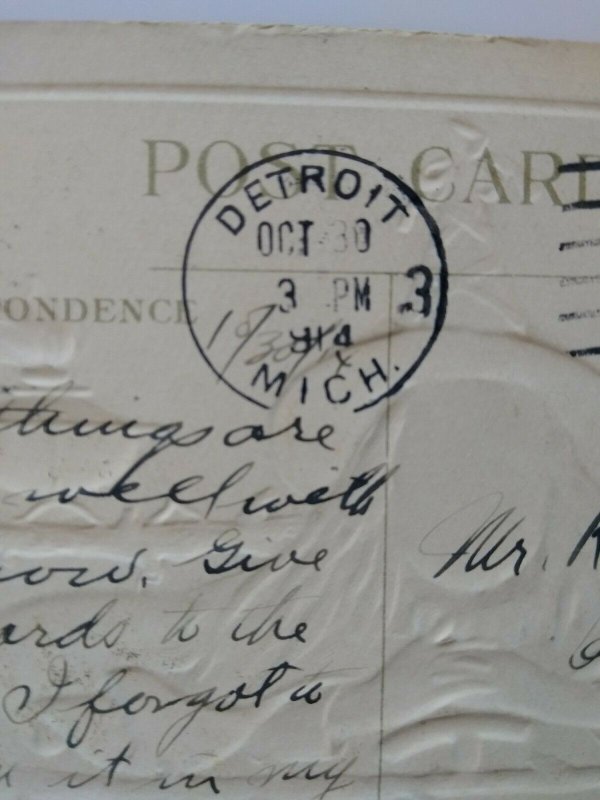 POST CARD
DETROIT
OCT 30
3 PM
3
MICH.
PONDENCE
things are
well with
Give
to the
I forgot to
it in my
Mr.